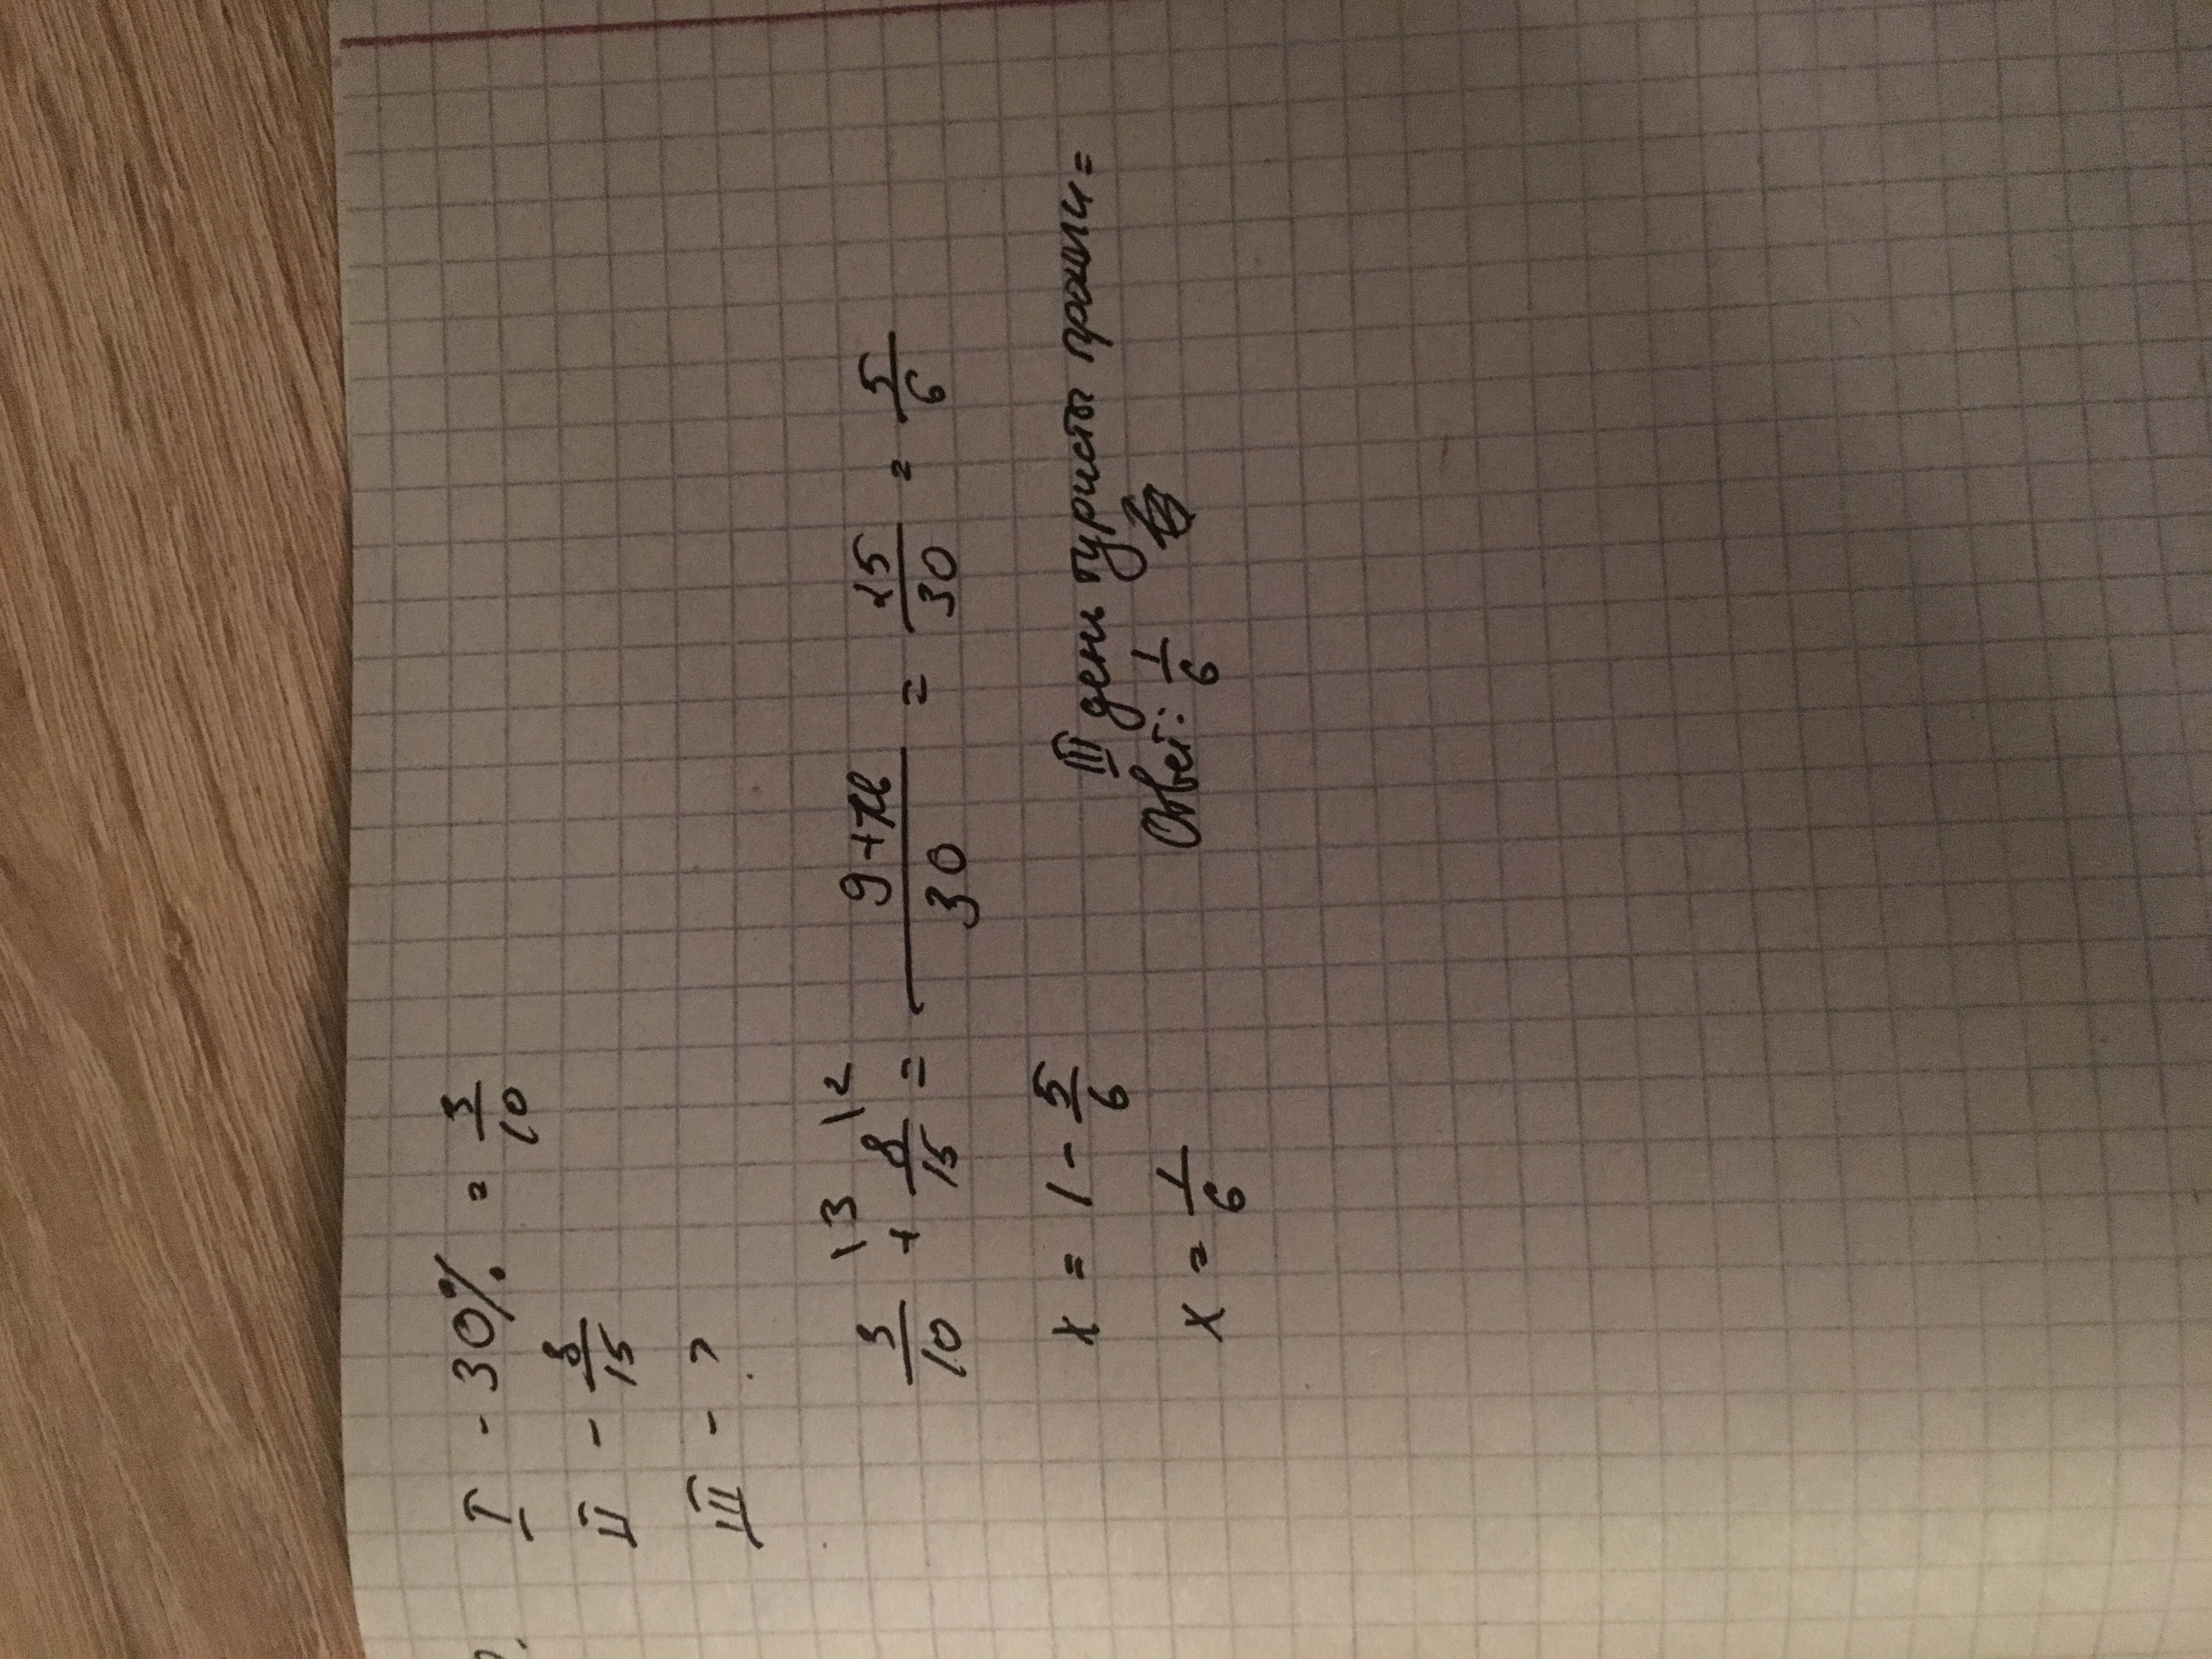 I - 30% = 3/10
II - 8/15
III - ?
3/10 \3 + 8/15 \2 = 9+16/30 = 25/30 = 5/6
x = 1 - 5/6
x = 1/6
III день туристы прошли =
Ответ: 1/6